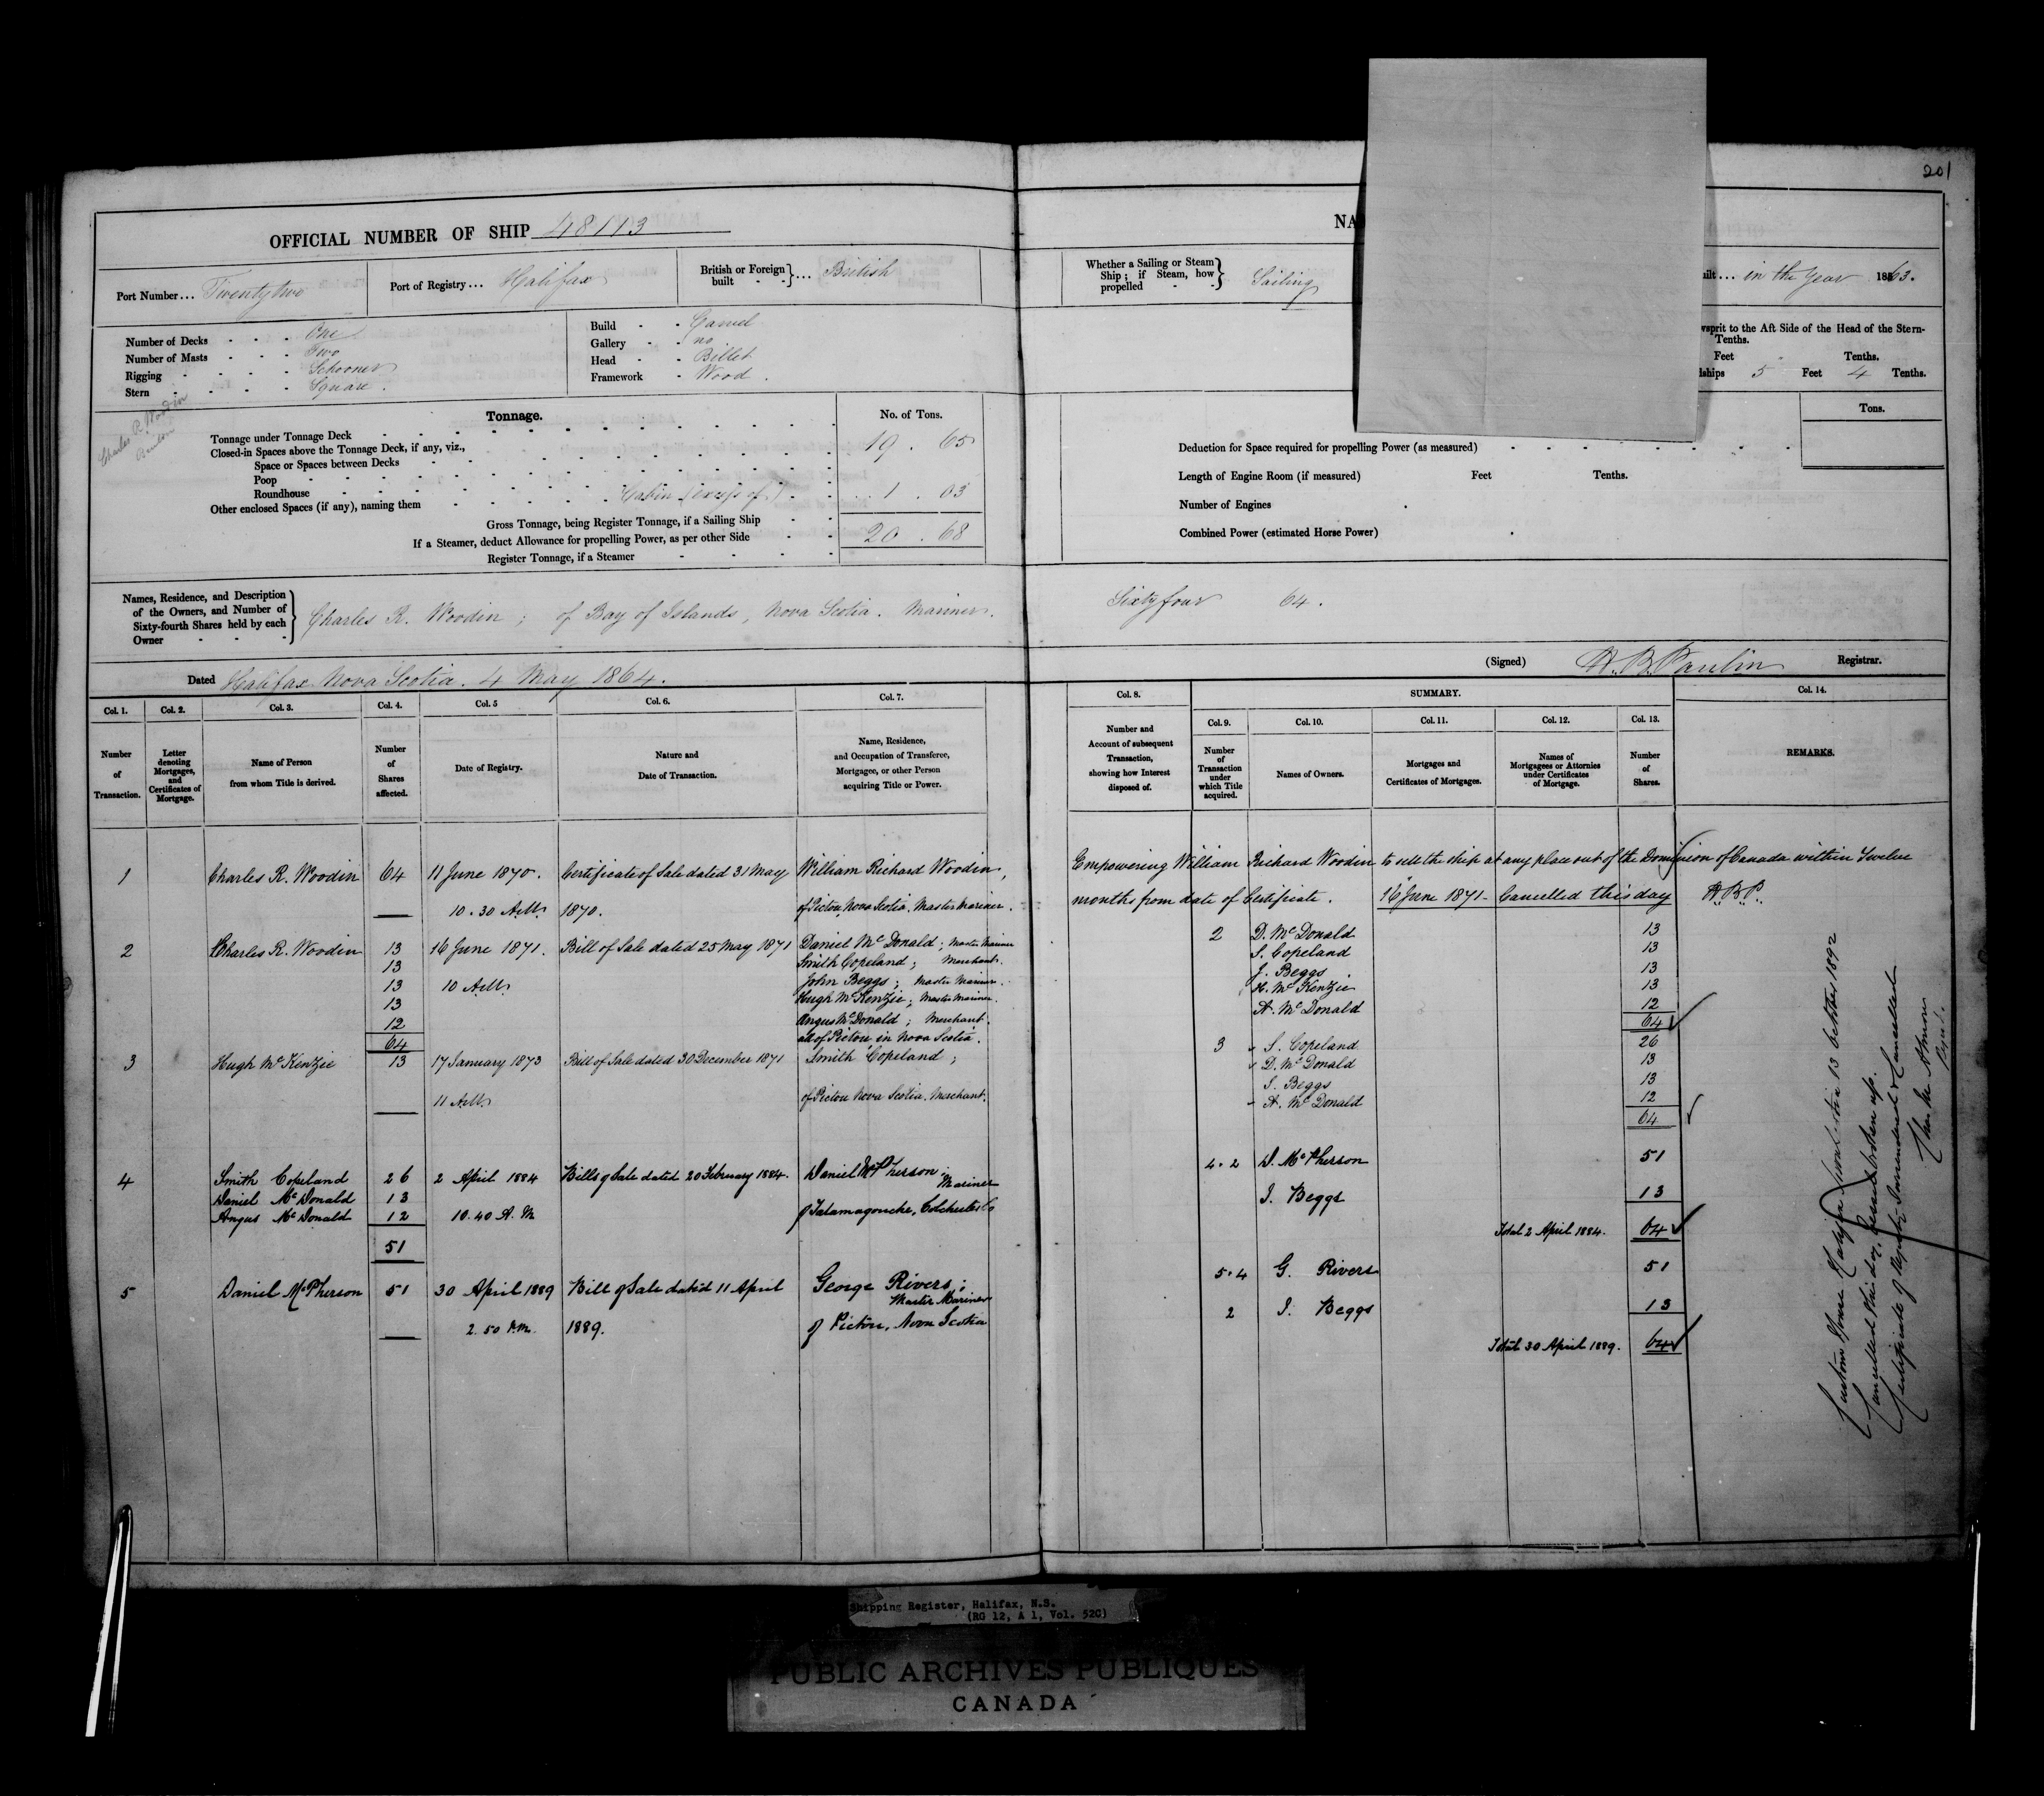 201
OFFICIAL NUMBER OF SHIP 48113
NA
Port Number... Twenty two
Port of Registry... Halifax
British or Foreign built - - }... British
Whether a Sailing or Steam Ship; if Steam, how propelled - - } Sailing
uilt... in the Year 1863.
Number of Decks - - - One
Number of Masts - - - Two
Rigging - - - - Schooner
Stern - - - - Square.
Build - - Carvel
Gallery - - no
Head - - Billet
Framework - Wood.
wsprit to the Aft Side of the Head of the Stern-
Tenths.
Feet Tenths.
dships 5 Feet 4 Tenths.
Charles R. Woodin
Tonnage. No. of Tons.
Tonnage under Tonnage Deck 19 . 65
Closed-in Spaces above the Tonnage Deck, if any, viz.,
Space or Spaces between Decks
Poop
Roundhouse
Other enclosed Spaces (if any), naming them Cabin (excess of) 1 . 03
Gross Tonnage, being Register Tonnage, if a Sailing Ship 20 . 68
If a Steamer, deduct Allowance for propelling Power, as per other Side
Register Tonnage, if a Steamer
Tons.
Deduction for Space required for propelling Power (as measured)
Length of Engine Room (if measured) Feet Tenths.
Number of Engines
Combined Power (estimated Horse Power)
Names, Residence, and Description of the Owners, and Number of Sixty-fourth Shares held by each Owner - - - } Charles R. Woodin; of Bay of Islands, Nova Scotia. Mariner. Sixty four 64.
Dated Halifax Nova Scotia. 4 May 1864.
(Signed) H. B. Paulin Registrar.
Col. 1. Col. 2. Col. 3. Col. 4. Col. 5 Col. 6. Col. 7. Col. 8. SUMMARY. Col. 14.
Col. 9. Col. 10. Col. 11. Col. 12. Col. 13.
Number of Transaction.
Letter denoting Mortgages, and Certificates of Mortgage.
Name of Person from whom Title is derived.
Number of Shares affected.
Date of Registry.
Nature and Date of Transaction.
Name, Residence, and Occupation of Transferee, Mortgagee, or other Person acquiring Title or Power.
Number and Account of subsequent Transaction, showing how Interest disposed of.
Number of Transaction under which Title acquired.
Names of Owners.
Mortgages and Certificates of Mortgages.
Names of Mortgagees or Attornies under Certificates of Mortgage.
Number of Shares.
REMARKS.
1 Charles R. Woodin 64 11 June 1870. Certificate of Sale dated 31 May William Richard Woodin,
10.30 A.M. 1870. of Pictou, Nova Scotia. Master Mariner.
Empowering William Richard Woodin to sell the ship at any place out of the Dominion of Canada within Twelve
months from date of Certificate. 16 June 1871 - Cancelled this day H.B.P.
2 Charles R. Woodin 13 16 June 1871. Bill of Sale dated 25 May 1871 Daniel McDonald; Master Mariner
13 Smith Copeland; Merchant.
13 10 A.M. John Beggs; Master Mariner.
13 Hugh McKenzie; Master Mariner.
12 Angus McDonald; Merchant.
64 all of Pictou in Nova Scotia.
2 D. McDonald 13
S. Copeland 13
J. Beggs 13
H. McKenzie 13
A. McDonald 12
64
3 Hugh McKenzie 13 17 January 1873 Bill of Sale dated 30 December 1871 Smith Copeland;
11 A.M. of Pictou Nova Scotia. Merchant.
3 S. Copeland 26
D. McDonald 13
J. Beggs 13
A. McDonald 12
64
4 Smith Copeland 26 2 April 1884 Bills of Sale dated 20 February 1884. Daniel McPherson; Mariner
Daniel McDonald 13
Angus McDonald 12 10.40 A.M of Tatamagouche, Colchester Co
51
4.2 D. McPherson 51
J. Beggs 13
Total 2 April 1884. 64
5 Daniel McPherson 51 30 April 1889 Bill of Sale dated 11 April George Rivers; Master Mariner
2.50 P.M. 1889. of Pictou, Nova Scotia
5.4 G. Rivers 51
2 J. Beggs 13
Total 30 April 1889. 64
Customs House Halifax Nova Scotia 13 October 1892
Cancelled this day, Vessel broken up.
Certificate of Registry Surrendered & Cancelled
Shipping Register, Halifax, N.S.
(RG 12, A 1, Vol. 520)
PUBLIC ARCHIVES PUBLIQUES
CANADA